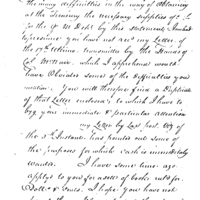 the many difficulties in the way of obtaining
at the Treasury the necessary supplies &c &c
for the W. Dept. by this statement I should
presume you have not rec'd my Letter of
the 17th Ultimo, transmitted by the Hands of
Col.
which I apprehend would
have Obviated some of the difficulties you
mention. You will therefore find a Duplicate
of that Letter enclosed; to which I have to
beg your immediate & particular attention
my Letter by last post
the Instant has pointed out some of
the purposes for which Cash is immediately
wanted.
I have some time ago
apply'd to you for a sett of books ruled for
Doll's & Cents. I hope you have not